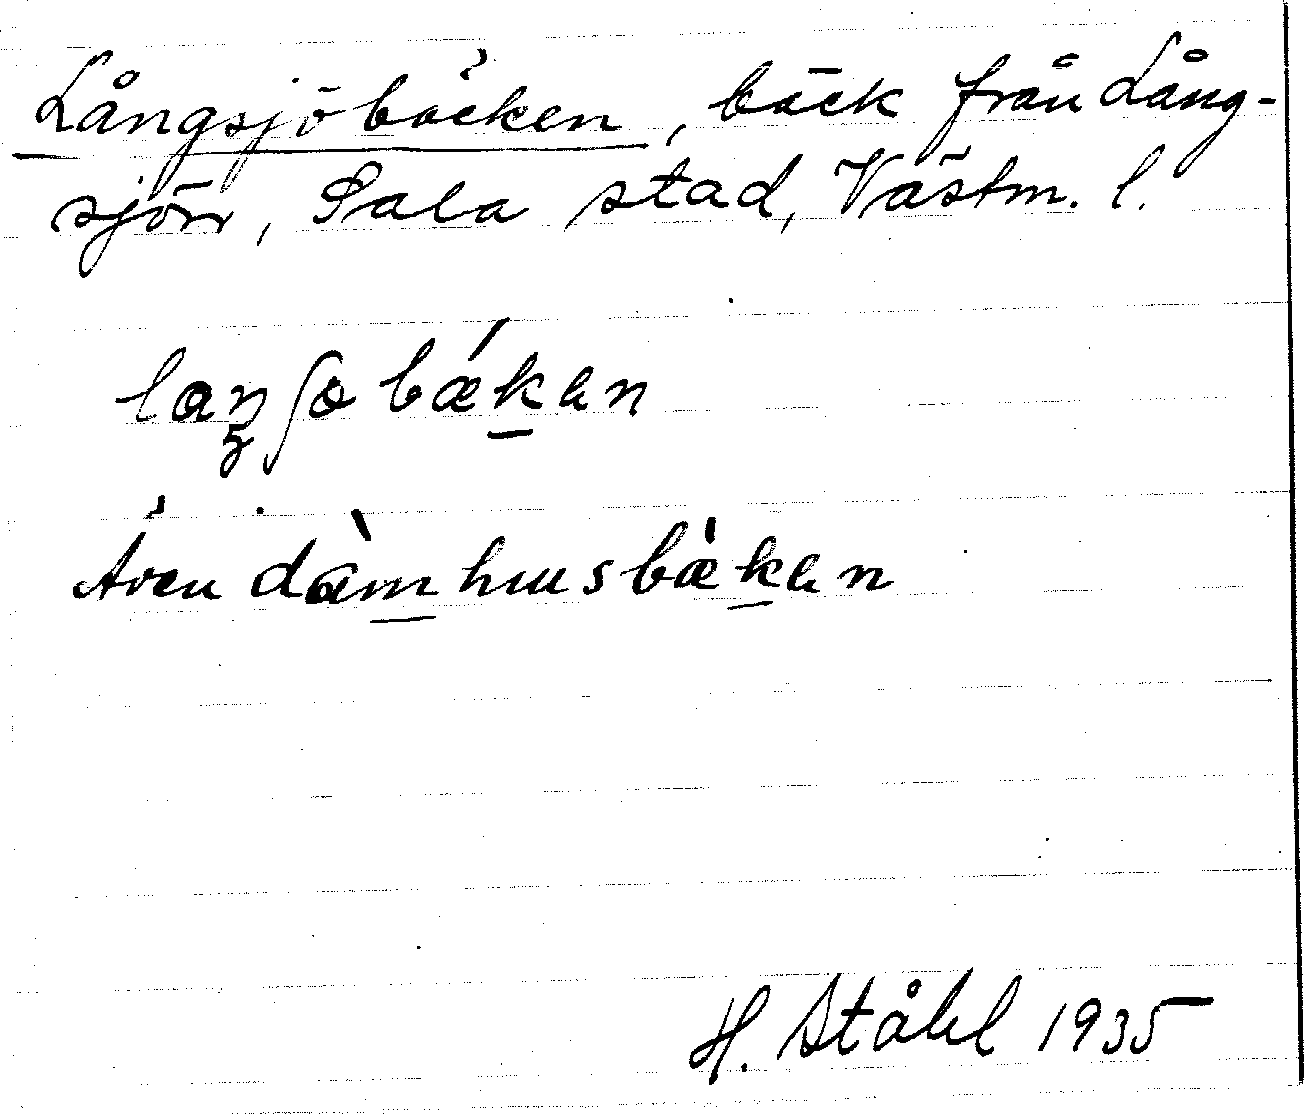 Långsjöbäcken, bäck från Lång-
sjön, Sala stad, Västm. l.
laŋʃobǽkan
Även dàmhusbæ̀kan
H. Ståhl 1935